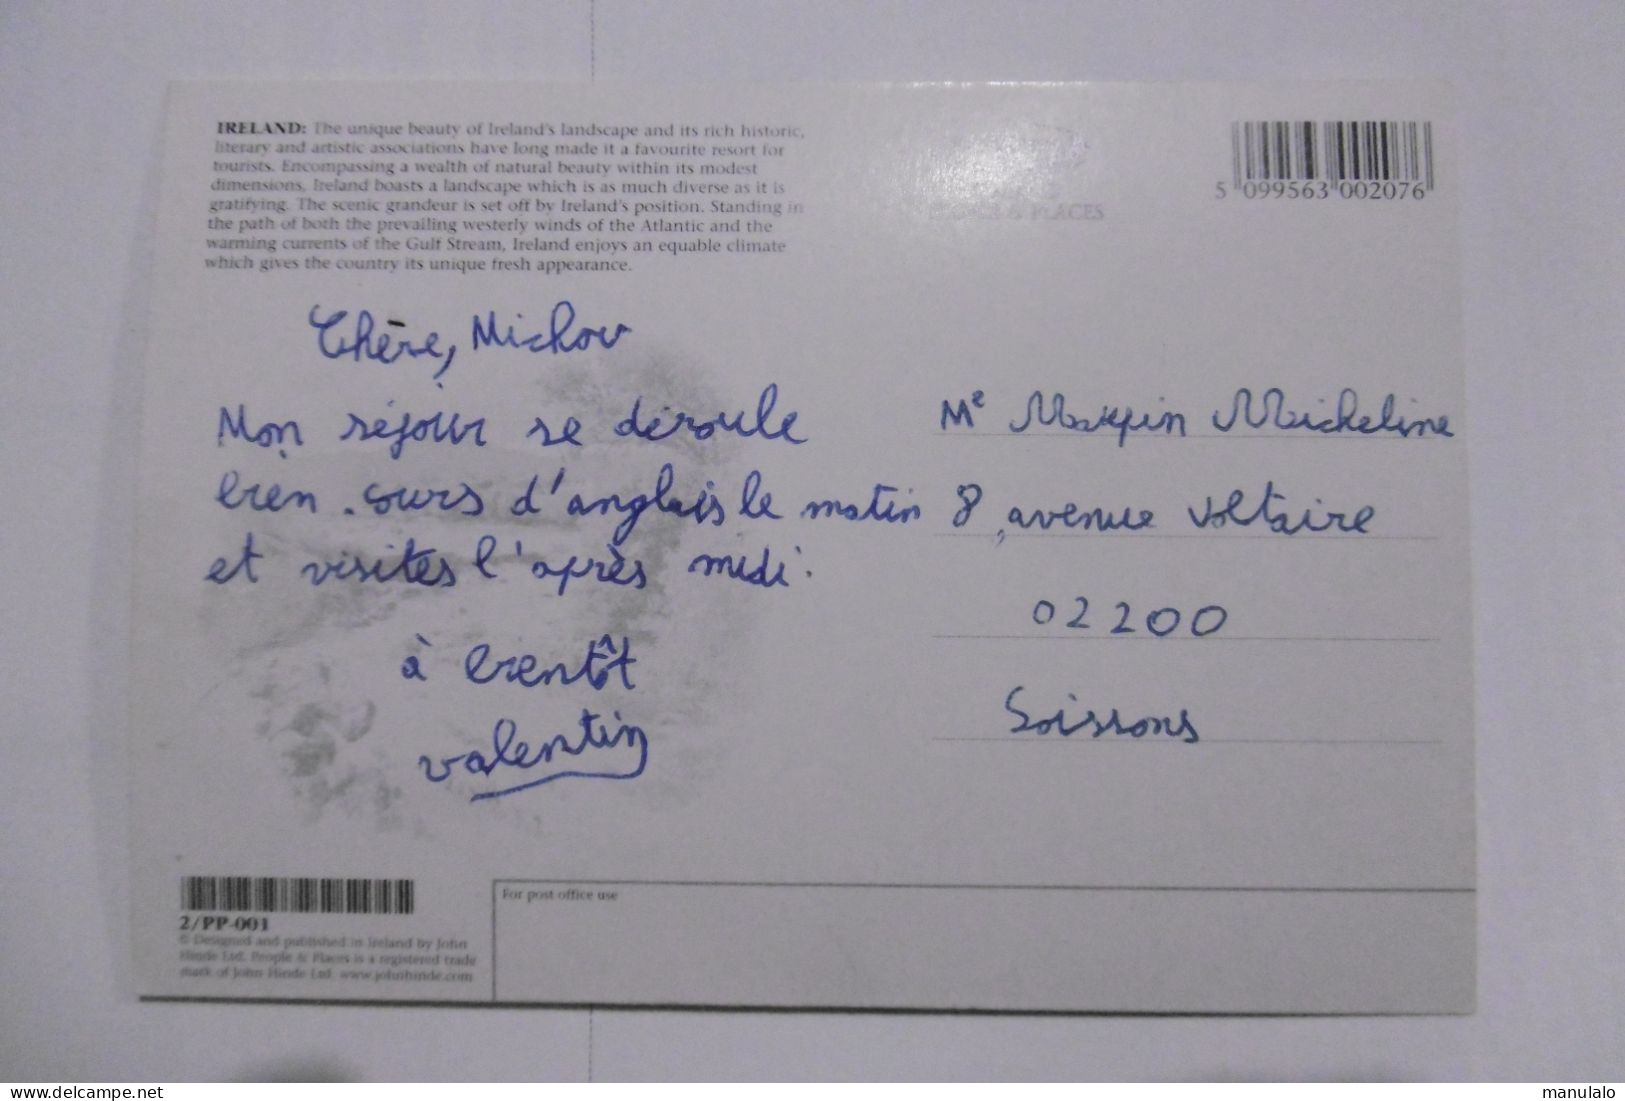 IRELAND: The unique beauty of Ireland's landscape and its rich historic,
literary and artistic associations have long made it a favourite resort for
tourists. Encompassing a wealth of natural beauty within its modest
dimensions, Ireland boasts a landscape which is as much diverse as it is
gratifying. The scenic grandeur is set off by Ireland's position. Standing in
the path of both the prevailing westerly winds of the Atlantic and the
warming currents of the Gulf Stream, Ireland enjoys an equable climate
which gives the country its unique fresh appearance.
& PLACES
5 099563 002076
Chère, Michou
Mon séjour se déroule
bien. cours d'anglais le matin
et visites l'après midi.
à bientôt
valentin
Me Micheline
8, avenue Voltaire
02200
Soissons
2/PP-001
© Designed and published in Ireland by John
Hinde Ltd. People & Places is a registered trade
mark of John Hinde Ltd. www.johnhinde.com
For post office use
delcampe.net
manulalo